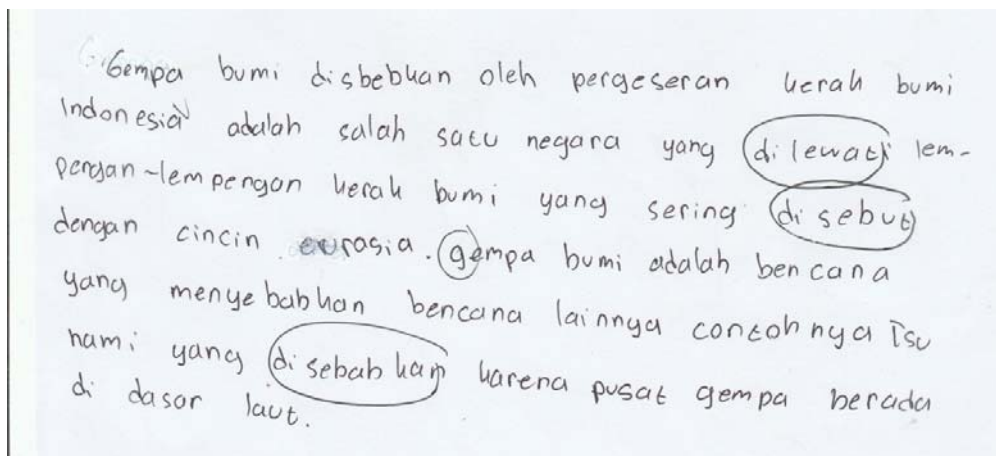 Gempa bumi disbebkan oleh pergeseran kerak bumi
Indonesia adalah salah satu negara yang di lewati lem-
pengan-lempengan kerak bumi yang sering di sebut
dengan cincin eurasia. gempa bumi adalah bencana
yang menyebabkan bencana lainnya contohnya Tsu
nami yang di sebabkan karena pusat gempa berada
di dasar laut.